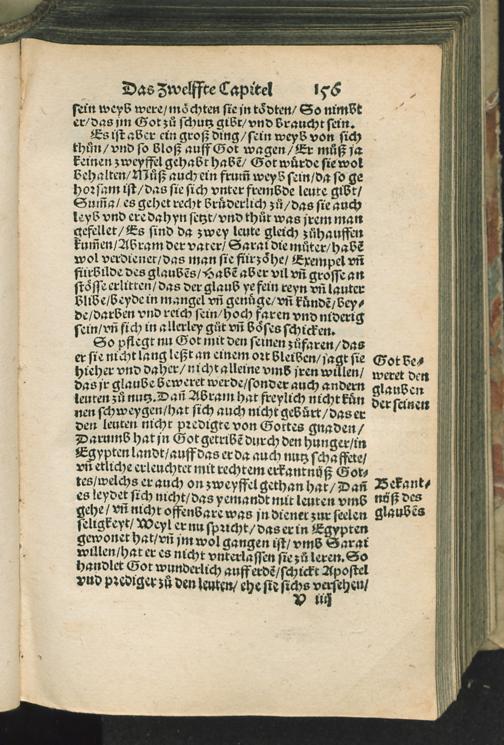 Das Zwelffte Capitel 156
sein weyb were/ möchten sie jn tödten/ So nimbt
er/ das jm Got zů schutz gibt/ vnd braucht sein.
Es ist aber ein groß ding/ sein weyb von sich
thůn/ vnd so bloß auff Got wagen/ Er můß ja
keinen zweyffel gehabt habẽ/ Got würde sie wol
behalten/ Můß auch ein frum̃ weyb sein/ da so ge
horsam ist/ das sie sich vnter frembde leute gibt/
Sum̃a/ es gehet recht brüderlich zů/ das sie auch
leyb vnd ere dahyn setzt/ vnd thůt was jrem man
gefellet/ Es sind da zwey leute gleich zůhauffen
kum̃en/ Abram der vater/ Sarai die můter/ habẽ
wol verdienet/ das man sie fürzöhe/ Exempel vñ
fürbilde des glaubẽs/ Habẽ aber vil vñ grosse an
stösse erlitten/ das der glaub ye fein reyn vñ lauter
blibe/ beyde in mangel vñ genüge/ vñ künden/ bey-
de/ darben vnd reich sein/ hoch faren vnd niderig
sein/ vñ sich in allerley gůt vñ böses schicken.
So pflegt nu Got mit den seinen zůfaren/ das
er sie nicht lang leßt an einem ort bleiben/ jagt sie
hieher vnd daher/ nicht alleine vmb jren willen/
das jr glaube beweret werde/ sonder auch andern
leuten zů nutz. Dañ Abram hat freylich nicht kün
nen schweygen/ hat sich auch nicht gebürt/ das er
den leuten nicht predigte von Gottes gnaden/
Darumb hat jn Got getribẽ durch den hunger/ in
Egypten landt/ auff das er da auch nutz schaffete/
vñ etliche erleuchtet mit rechtem erkantnüß Got-
tes/ welchs er auch on zweyffel gethan hat/ Dañ
es leydet sich nicht/ das yemandt mit leuten vmb
gehe/ vñ nicht offenbare was jn dienet zur seelen
seligkeyt/ Weyl er nu spricht/ das er in Egypten
gewonet hat/ vñ jm wol gangen ist/ vmb Sarai
willen/ hat er es nicht vnterlassen sie zů leren. So
handlet Got wunderlich auff erdẽ/ schickt Apostel
vnd prediger zů den leuten/ ehe sie sichs versehen/
V iiij
Got be-
weret den
glauben
der seinen
Bekant-
nüß des
glaubẽs